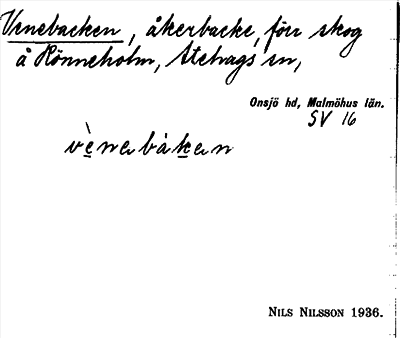 Venebacken, åkerbacke, förr skog
å Rönneholm, Stehags sn,
Onsjö hd, Malmöhus län.
SV 16
NILS NILSSON 1936.